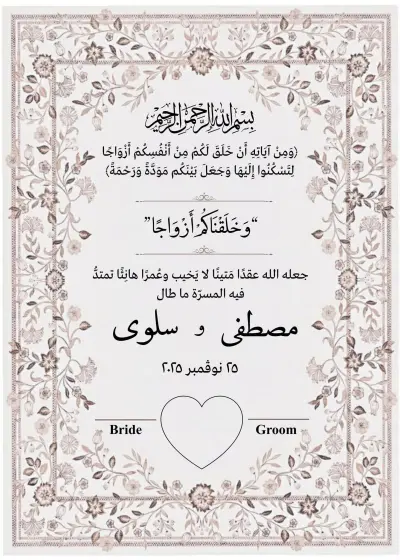 بِسْمِ اللهِ الرَّحْمٰنِ الرَّحِيْمِ
﴿وَمِنْ آيَاتِهِ أَنْ خَلَقَ لَكُمْ مِنْ أَنْفُسِكُمْ أَزْوَاجًا
لِتَسْكُنُوا إِلَيْهَا وَجَعَلَ بَيْنَكُم مَوَدَّةً وَرَحْمَةً﴾
“وَخَلَقْنَاكُمْ أَزْوَاجًا”
جعله الله عقدًا مَتينًا لا يَخيب وعُمرًا هانِئًا تمتدُّ
فيه المسرّة ما طال
مصطفى و سلوى
٢٥ نوڤمبر ٢٠٢٥
Bride Groom